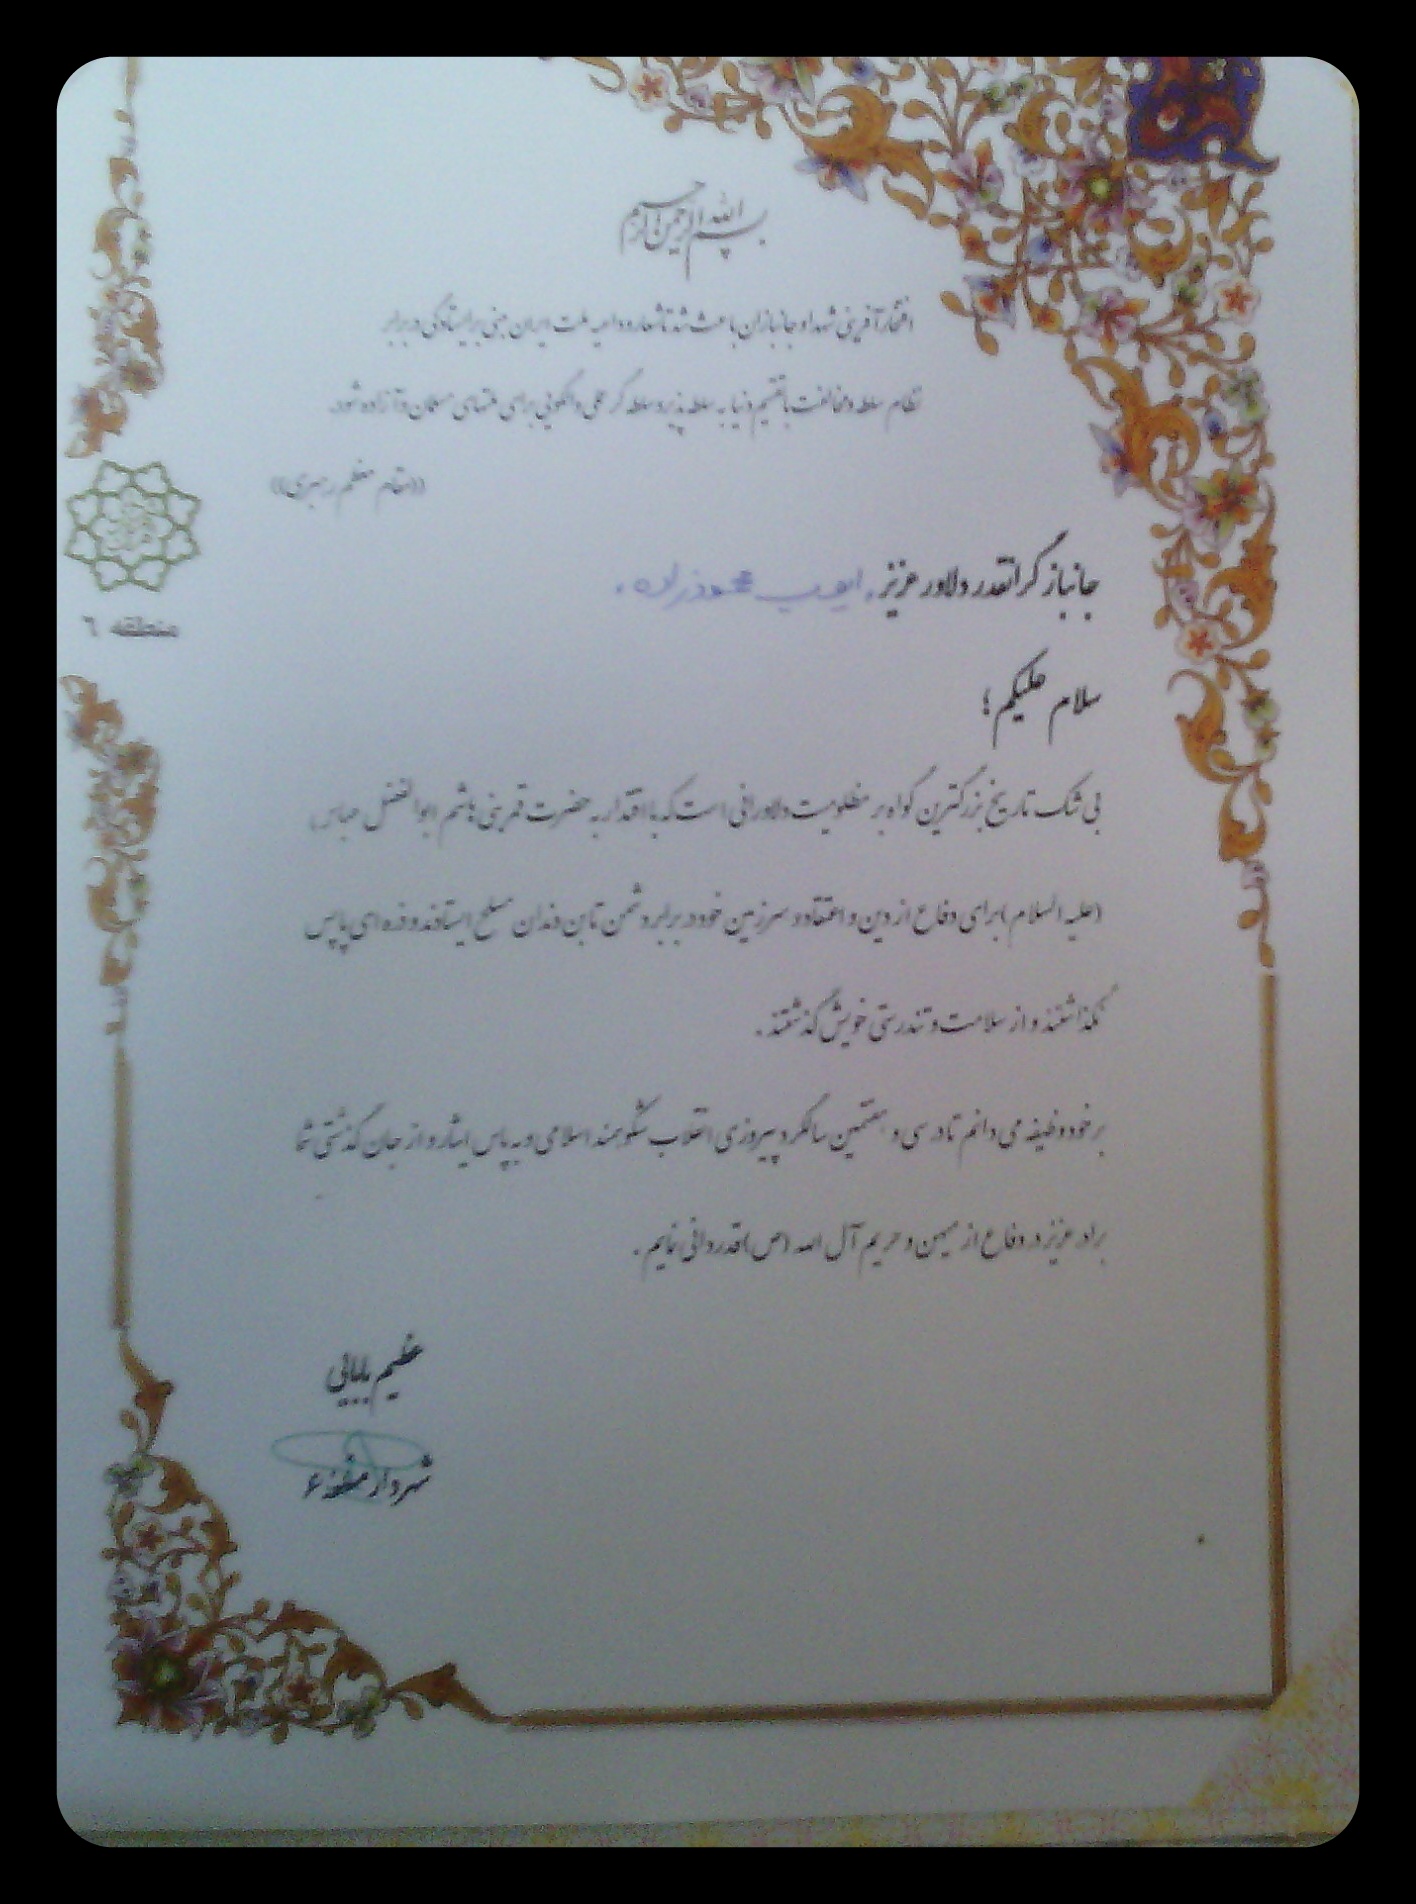 بسم الله الرحمن الرحیم
افتخار آفرینی شهدا و جانبازان باعث شد تا شعار و داعیه ملت ایران مبنی بر ایستادگی در برابر
نظام سلطه و مخالفت با تقسیم دنیا به سلطه پذیر و سلطه گر عملی و الگویی برای ملتهای مسلمان و آزاده شود.
((مقام معظم رهبری))
منطقه ٦
جانباز گرانقدر و دلاور عزیز، ایوب محمودزاده.
سلام علیکم؛
بی شک تاریخ بزرگترین گواه بر مظلومیت دلاورانی است که با اقتدا به حضرت قمر بنی هاشم ابوالفضل عباس
(علیه السلام) برای دفاع از دین و اعتقاد و سرزمین خود در برابر دشمن تا بن دندان مسلح ایستادند و ذره ای پا پس
نگذاشتند و از سلامت و تندرستی خویش گذشتند.
بر خود وظیفه می دانم تا در سی و هفتمین سالگرد پیروزی انقلاب شکوهمند اسلامی و به پاس ایثار و از جان گذشتگی شما
برادر عزیز در دفاع از میهن و حریم آل الله (ص) قدردانی نمایم.
عظیم بابایی
شهردار منطقه ۶